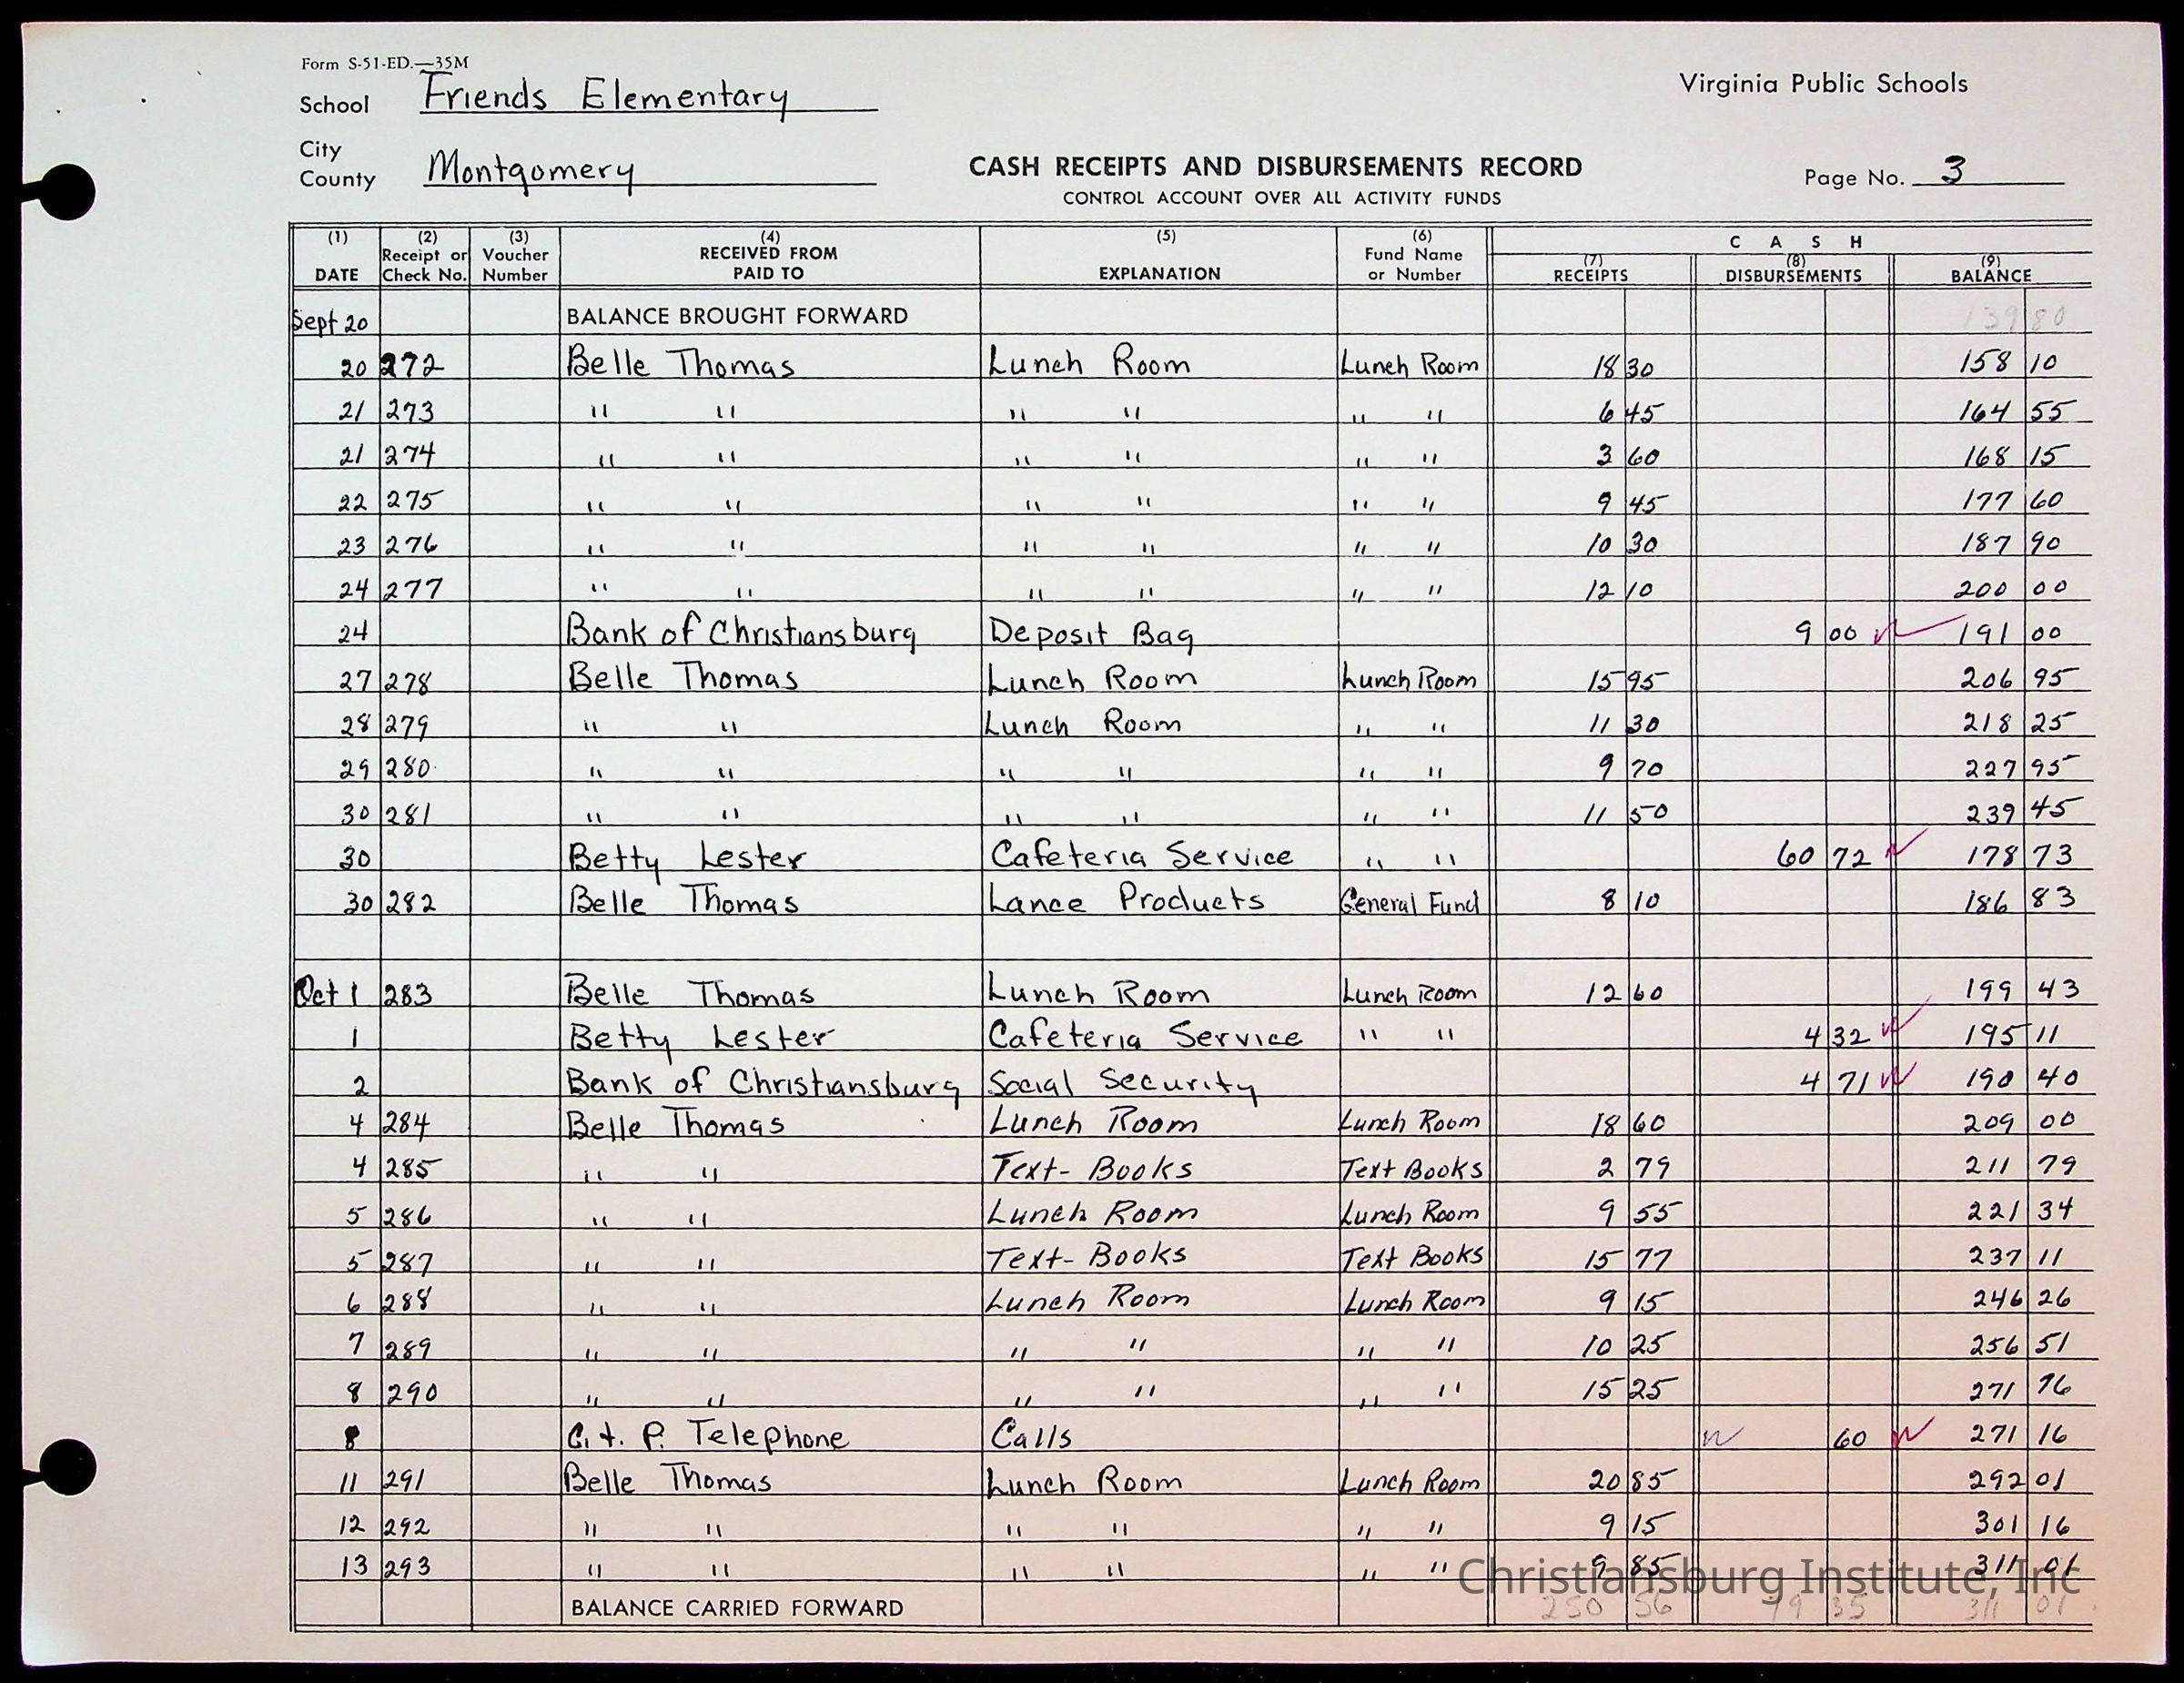 Form S-51-ED.—35M
School Friends Elementary
Virginia Public Schools
City
County Montgomery
CASH RECEIPTS AND DISBURSEMENTS RECORD
Page No. 3
CONTROL ACCOUNT OVER ALL ACTIVITY FUNDS
(1) DATE (2) Receipt or Check No. (3) Voucher Number (4) RECEIVED FROM PAID TO (5) EXPLANATION (6) Fund Name or Number CASH (7) RECEIPTS (8) DISBURSEMENTS (9) BALANCE
Sept 20 BALANCE BROUGHT FORWARD 139 80
20 272 Belle Thomas Lunch Room Lunch Room 18 30 158 10
21 273 " " " " " " 6 45 164 55
21 274 " " " " " " 3 60 168 15
22 275 " " " " " " 9 45 177 60
23 276 " " " " " " 10 30 187 90
24 277 " " " " " " 12 10 200 00
24 Bank of Christiansburg Deposit Bag 9 00 191 00
27 278 Belle Thomas Lunch Room Lunch Room 15 95 206 95
28 279 " " Lunch Room " " 11 30 218 25
29 280 " " " " " " 9 70 227 95
30 281 " " " " " " 11 50 239 45
30 Betty Lester Cafeteria Service " " 60 72 178 73
30 282 Belle Thomas Lance Products General Fund 8 10 186 83
Oct 1 283 Belle Thomas Lunch Room Lunch Room 12 60 199 43
1 Betty Lester Cafeteria Service " " 4 32 195 11
2 Bank of Christiansburg Social Security 4 71 190 40
4 284 Belle Thomas Lunch Room Lunch Room 18 60 209 00
4 285 " " Text-Books Text Books 2 79 211 79
5 286 " " Lunch Room Lunch Room 9 55 221 34
5 287 " " Text-Books Text Books 15 77 237 11
6 288 " " Lunch Room Lunch Room 9 15 246 26
7 289 " " " " " " 10 25 256 51
8 290 " " " " " " 15 25 271 76
8 C. + P. Telephone Calls 60 271 16
11 291 Belle Thomas Lunch Room Lunch Room 20 85 292 01
12 292 " " " " " " 9 15 301 16
13 293 " " " " " " 9 85 311 01
Christiansburg Institute, Inc
BALANCE CARRIED FORWARD 250 56 79 35 311 01